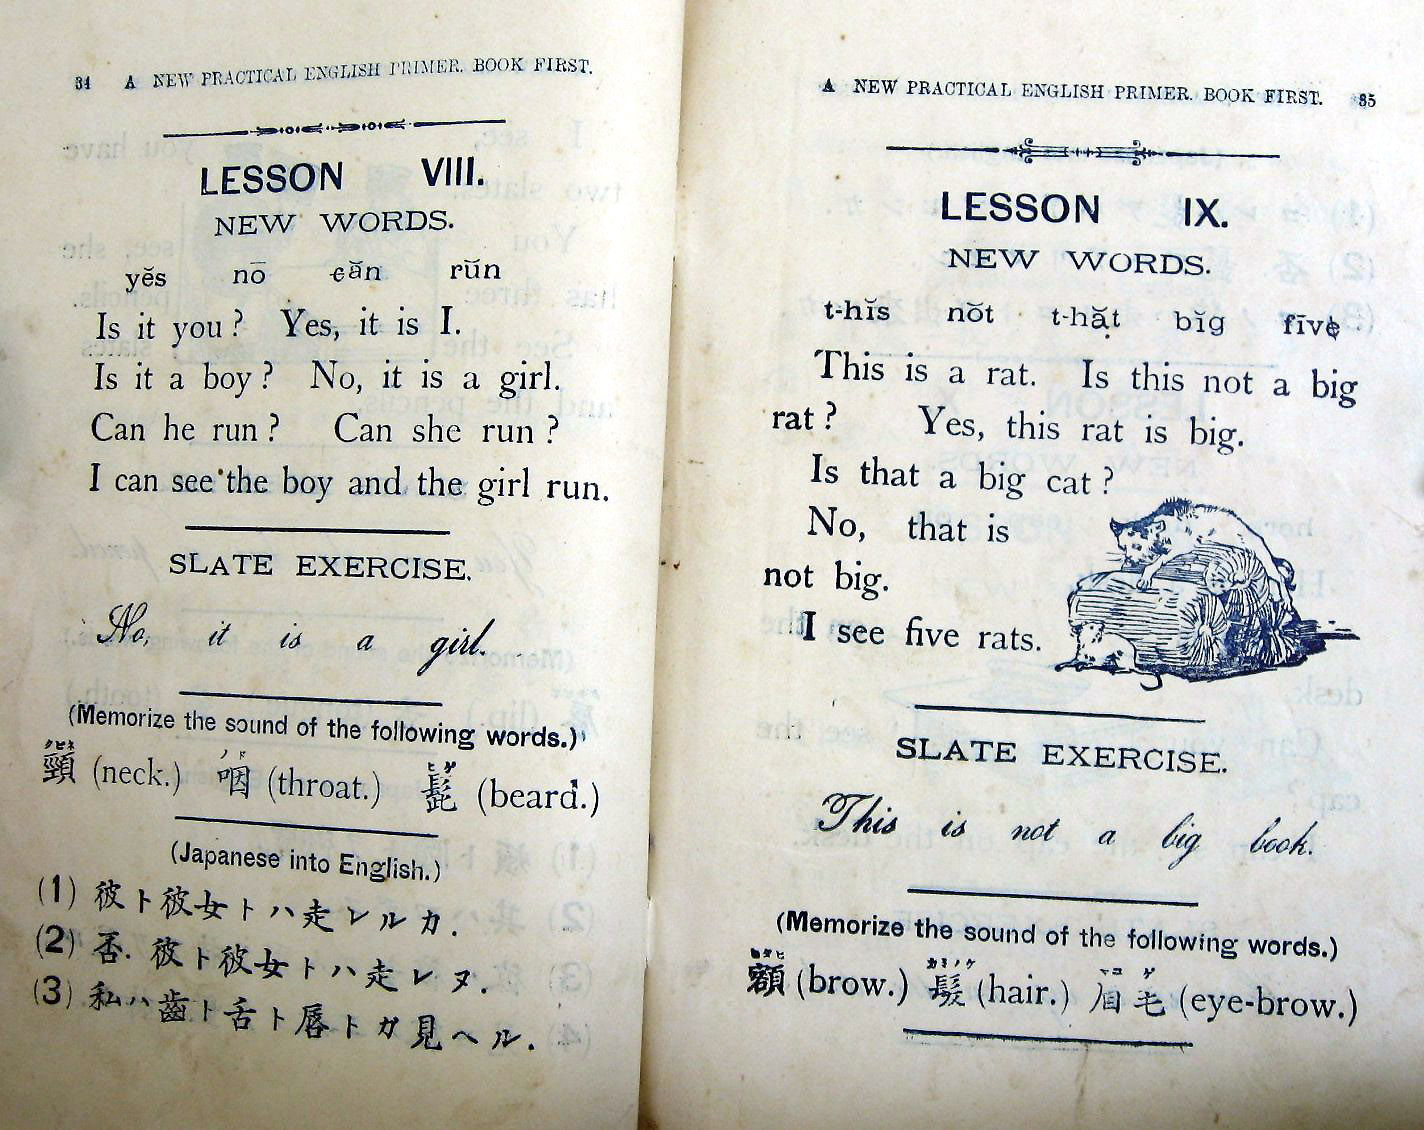 34 A NEW PRACTICAL ENGLISH PRIMER. BOOK FIRST.
LESSON VIII.
NEW WORDS.
yĕs nō căn rŭn
Is it you? Yes, it is I.
Is it a boy? No, it is a girl.
Can he run? Can she run?
I can see the boy and the girl run.
SLATE EXERCISE.
No, it is a girl.
(Memorize the sound of the following words.)
クビネ ノド ヒゲ
頸 (neck.) 咽 (throat.) 髭 (beard.)
(Japanese into English.)
(1) 彼ト彼女トハ走レルカ.
(2) 否. 彼ト彼女トハ走レヌ.
(3) 私ハ齒ト舌ト唇トガ見ヘル.
A NEW PRACTICAL ENGLISH PRIMER. BOOK FIRST. 35
LESSON IX.
NEW WORDS.
t-hĭs nŏt t-hăt bĭg fīve
This is a rat. Is this not a big
rat? Yes, this rat is big.
Is that a big cat?
No, that is
not big.
I see five rats.
SLATE EXERCISE.
This is not a big book.
(Memorize the sound of the following words.)
ヒタヒ カミノケ マユ ゲ
額 (brow.) 髮 (hair.) 眉毛 (eye-brow.)